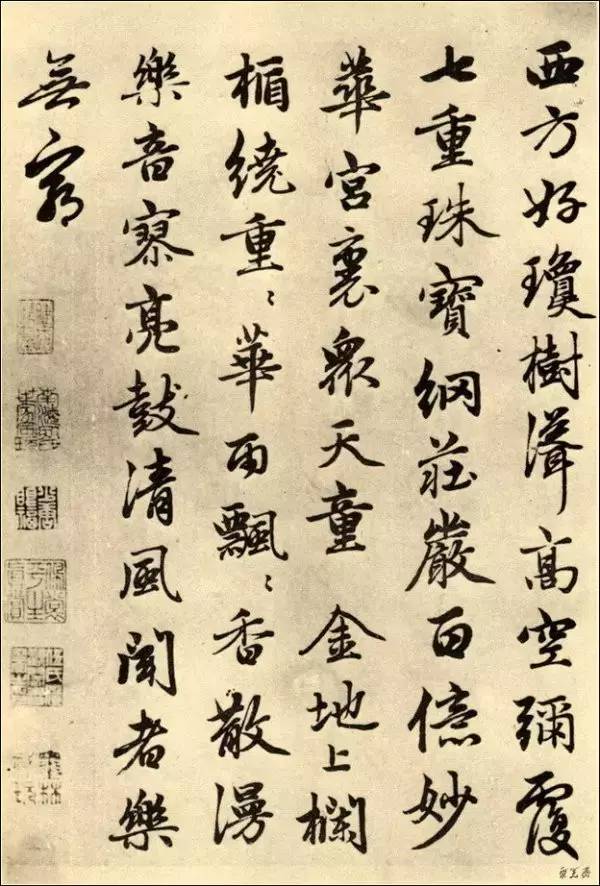 西方好瓊樹聳高空彌覆
七重珠寶網莊嚴百億妙
華宮裏眾天童 金地上欄
楯繞重〻華雨飄〻香散漫
樂音寥亮鼓清風聞者樂
無窮